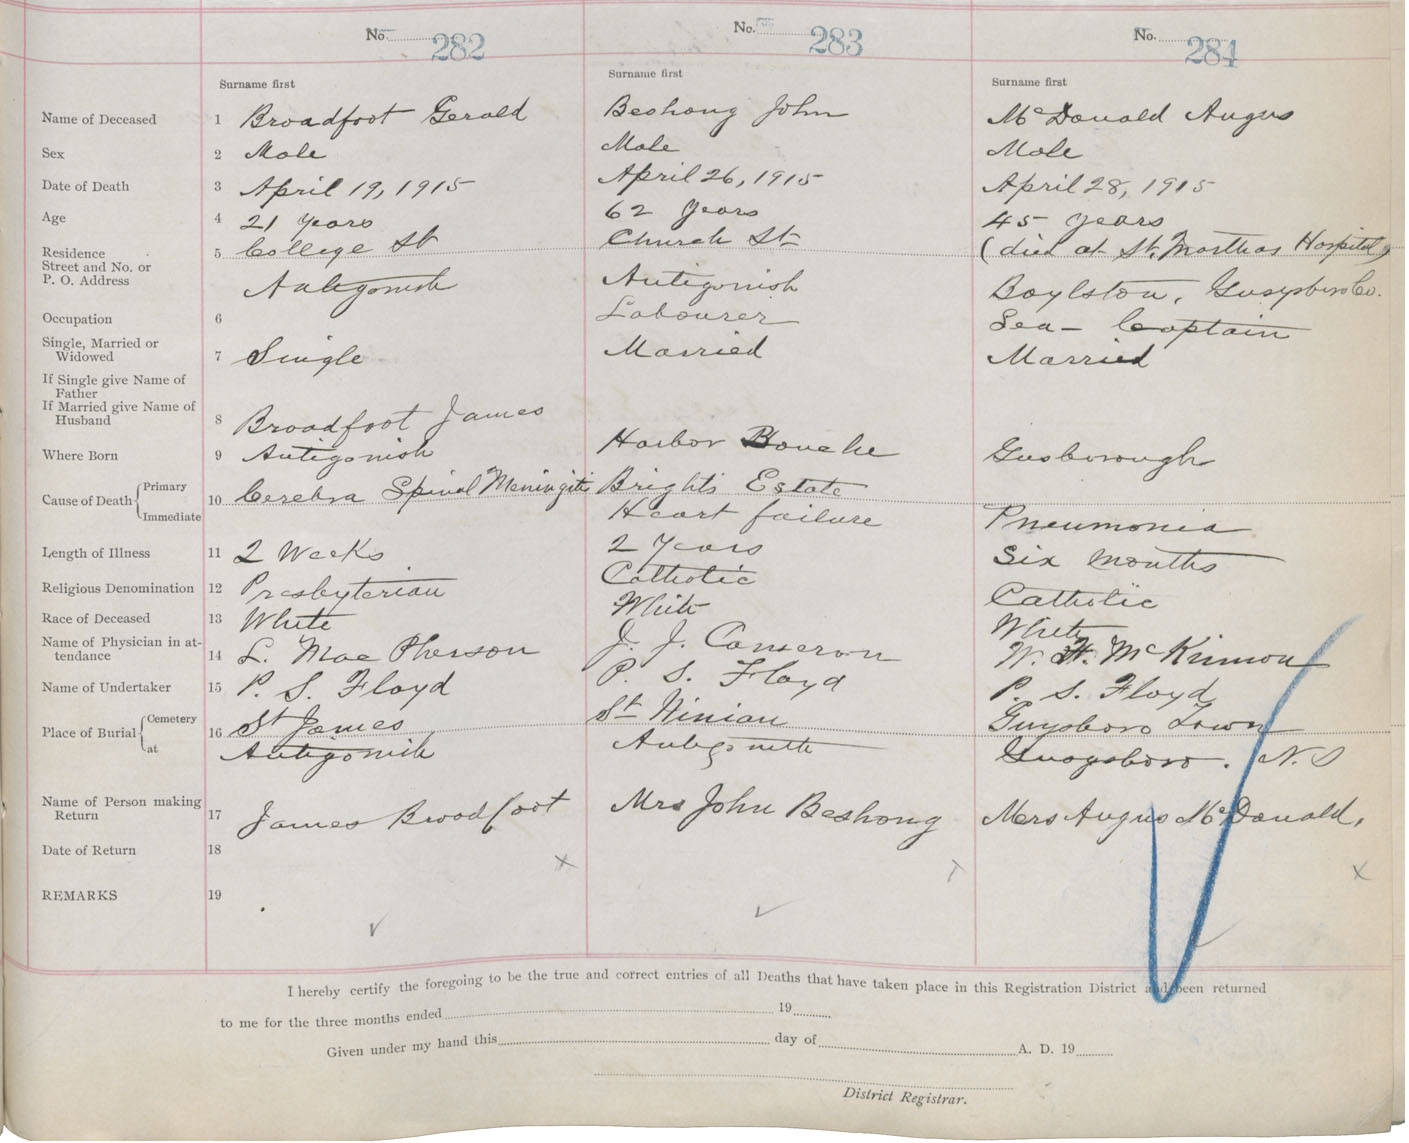 No. 282
No. 283
No. 284
Surname first
Surname first
Surname first
Name of Deceased 1 Broadfoot Gerald
Beshong John
McDonald Angus
Sex 2 Male
Male
Male
Date of Death 3 April 19, 1915
April 26, 1915
April 28, 1915
Age 4 21 Years
62 Years
45 Years
Residence
Street and No. or
P. O. Address
5 College St
Antigonish
Church St
Antigonish
(died at St. Marthas Hospital)
Boylston, Guysboro Co.
Occupation 6
Labourer
Sea-Captain
Single, Married or
Widowed
7 Single
Married
Married
If Single give Name of
Father
If Married give Name of
Husband
8 Broadfoot James
Where Born 9 Antigonish
Harbor Bouche
Gusborough
Cause of Death { Primary
Immediate
10 Cerebra Spinal Meningitis
Brights Estate
Heart failure
Pneumonia
Length of Illness 11 2 Weeks
2 Years
Six Months
Religious Denomination 12 Presbyterian
Catholic
Catholic
Race of Deceased 13 White
White
White
Name of Physician in at-
tendance
14 L. MacPherson
J. J. Cameron
W. H. McKinnon
Name of Undertaker 15 P. S. Floyd
P. S. Floyd
P. S. Floyd
Place of Burial { Cemetery
at
16 St James
Antigonish
St Ninian
Antigonish
Guysboro Town
Guysboro. N.S
Name of Person making
Return
17 James Broadfoot
Mrs John Beshong
Mrs Angus McDonald.
Date of Return 18
REMARKS 19
I hereby certify the foregoing to be the true and correct entries of all Deaths that have taken place in this Registration District and been returned
to me for the three months ended 19
Given under my hand this day of A. D. 19
District Registrar.